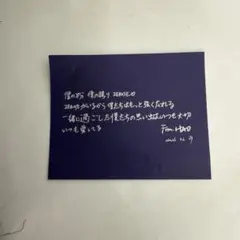 僕の力 僕の誇り ZEROSE
ZEROSEがいるから僕たちはもっと強くなれる
一緒に過ごした僕たちの思い出はいつも大切
いつも愛してる
From. HAO